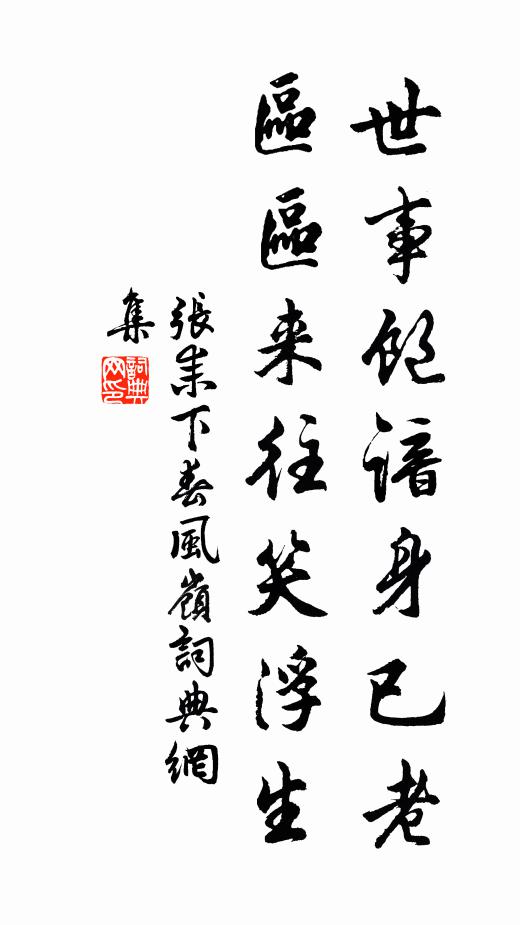 世事飽諳身已老
區區来往笑浮生
張耒下春風嶺詞典網
集
詞典
网印